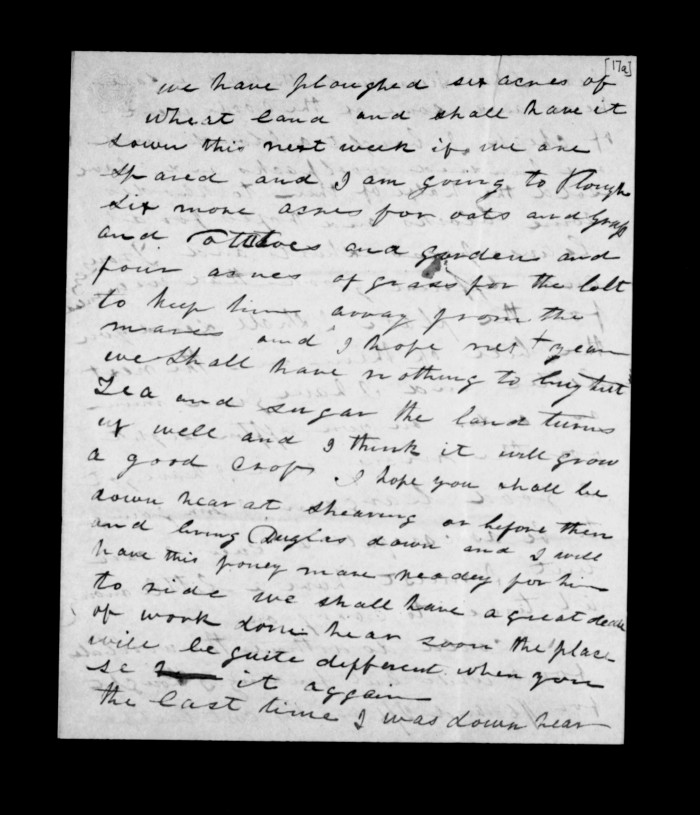 [17a]
we have ploughed six acres of
wheat land and shall have it
sown this next week if we are
spared and I am going to Plough
six more acres for oats and Grass
and and garden and
four acres of grass for the colt
to keep him away from the
mares and I hope next year
we shall have nothing to buy but
Tea and sugar the land turns
up well and I think it will grow
a good crop I hope you shall be
down hear at shearing or before then
and bring Duglas down and I will
have this poney mare readey for him
to ride we shall have a great deale
of work done hear soon the place
will be quite different when you
se it aggain
the last time I was down hear